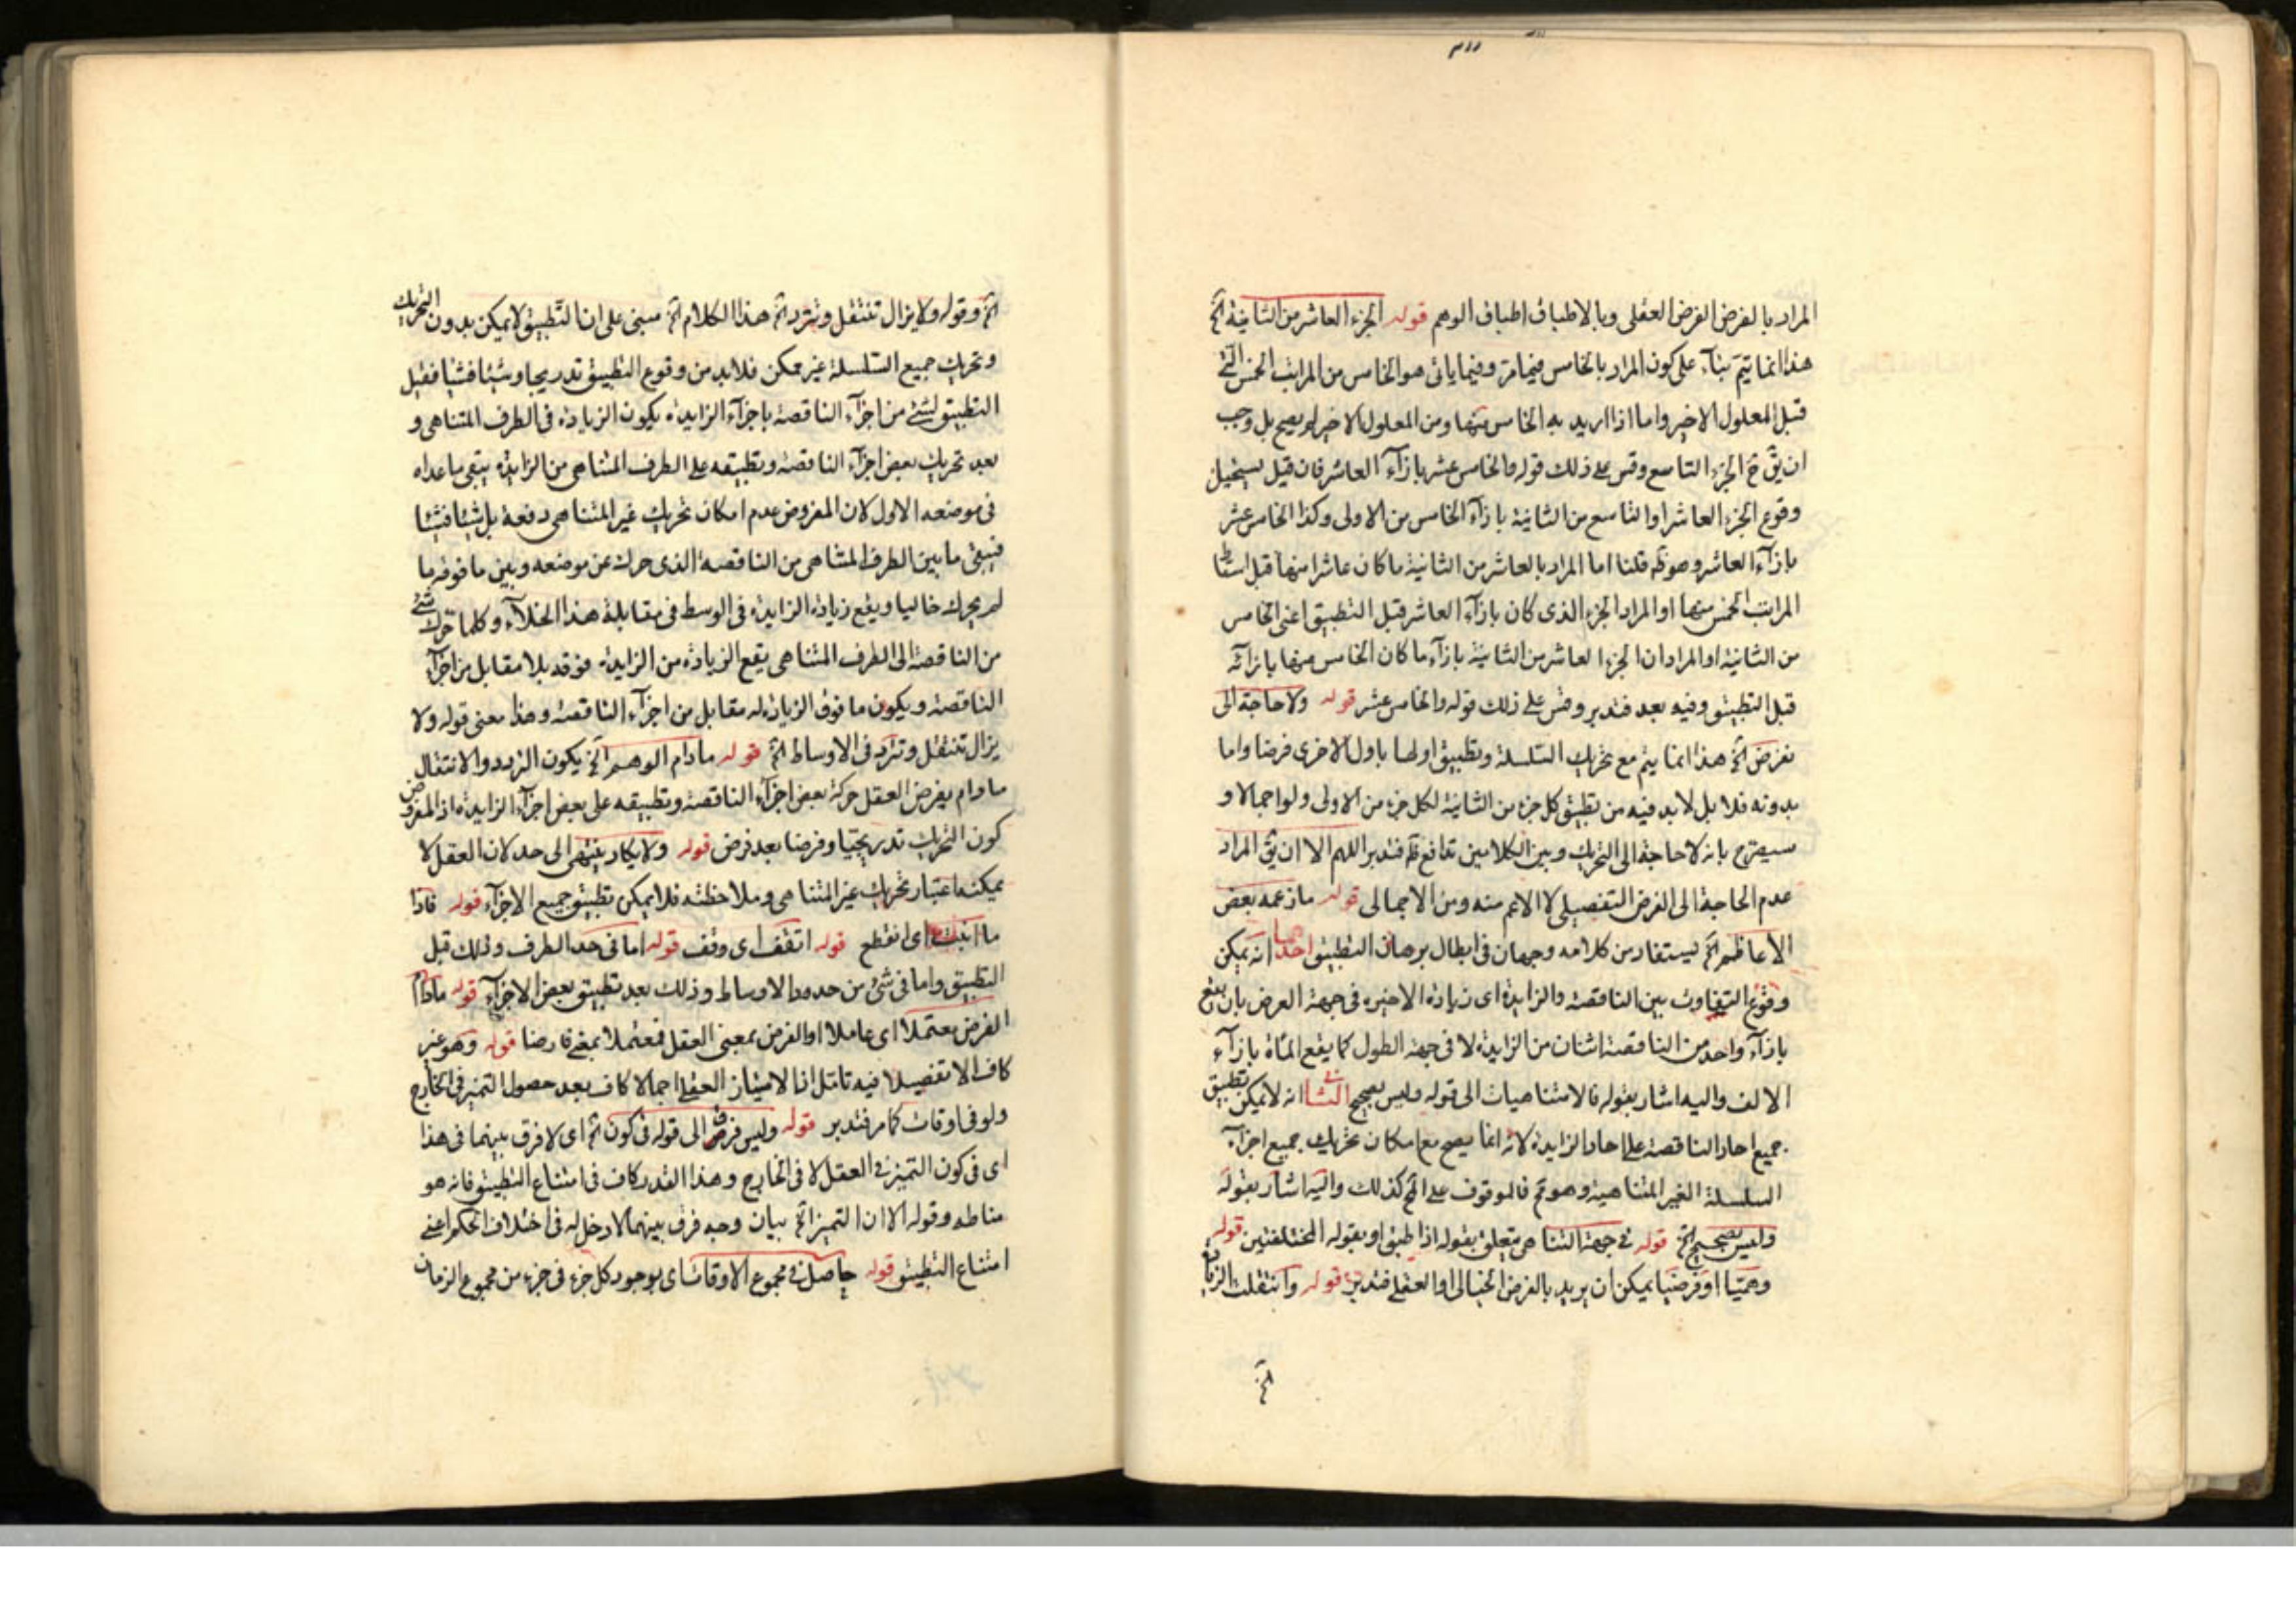 المراد بالفرض الفرض العقلى وبالاطباق اطباق الوهم قوله الجزء العاشر من الثانية الخ
هذا انما يتم بناء على كون المراد بالخامس فيما مر وفيما ياتى هو الخامس من المراتب الخمس التى
قبل المعلول الاخير واما اذا اريد به الخامس منها ومن المعلول الاخير لم يصح بل وجب
ان يق ح الجزء التاسع وقس على ذلك قوله والخامس عشر بازآء العاشر فان قيل يستحيل
وقوع الجزء العاشر او التاسع من الثانية بازآء الخامس من الاولى وكذا الخامس عشر
بازآء العاشر وهو ظم قلنا اما المراد بالعاشر من الثانية ما كان عاشرا منها قبل اسقاط
المراتب الخمس منها او المراد الجزء الذى كان بازآء العاشر قبل التطبيق اعنى الخامس
من الثانية او المراد ان الجزء العاشر من الثانية بازآء ما كان الخامس منها بازآئه
قبل التطبيق وفيه بعد فتدبر وقس على ذلك قوله والخامس عشر قوله ولا حاجة الى
نفرض الخ هذا انما يتم مع تحريك السلسلة وتطبيق اولها باول الاخرى فرضا واما
بدونه فلا بل لابد فيه من تطبيق كل جزء من الثانية لكل جزء من الاولى ولو اجمالا و
سيصرح بانه لا حاجة الى التحريك وبين الكلامين تدافع ظم فتدبر اللهم الا ان يق المراد
عدم الحاجة الى الفرض التفصيلى لا الاعم منه ومن الاجمالى قوله ما زعمه بعض
الاعاظم الخ يستفاد من كلامه وجهان فى ابطال برهان التطبيق احدهما انه يمكن
وقوع التفاوت بين الناقصة والزايدة اى زيادة الاخيره فى جهة العرض بان يقع
بازآء واحد من الناقصة اثنان من الزايدة لا فى جهة الطول كما يقع المأة بازآء
الالف واليه اشار بقوله فالامتناهيات الى قوله وليس بصحيح الثانى انه لا يمكن تطبيق
جميع احاد الناقصة على احاد الزايدة لانه انما يصح مع امكان تحريك جميع اجزآء
السلسلة الغير المتناهية وهو مم فالموقوف على المم كذلك واليه اشار بقوله
وليس بصحيح الخ قوله فى جهة التناهى متعلق بقوله اذا طبق او بقوله المختلفتين قوله
وهميا او فرضيا يمكن ان يريد بالفرض الخيالى او العقلى فتدبر قوله وانتقلت الزيادة
الخ
الخ وقوله ولا يزال تنتقل وتترد الخ هذا الكلام الخ مبنى على ان التطبيق لا يمكن بدون التحريك
وتحريك جميع السلسلة غير ممكن فلابد من وقوع التطبيق تدريجا وشيئا فشيئا فقبل
التطبيق لشئ من اجزآء الناقصة باجزآء الزايدة يكون الزيادة فى الطرف المتناهى و
بعد تحريك بعض اجزآء الناقصة وتطبيقه على الطرف المتناهى من الزايدة يبقى ما عداه
فى موضعه الاول لان المفروض عدم امكان تحريك غير المتناهى دفعة بل شيئا فشيئا
فيبقى ما بين الطرف المتناهى من الناقصة الذى حرك عن موضعه وبين ما فوقه ما
لم يحرك خاليا ويقع زيادة الزايدة فى الوسط فى مقابلة هذا الخلآء وكلما تحرك شئ
من الناقصة الى الطرف المتناهى يقع الزيادة من الزايدة فوقه بلا مقابل من اجزآء
الناقصة ويكون ما فوق الزيادة له مقابل من اجزآء الناقصة وهذا معنى قوله ولا
يزال تنتقل وتترد فى الاوساط الخ قوله مادام الوهم الخ يكون التردد والانتقال
مادام يفرض العقل حركة بعض اجزآء الناقصة وتطبيقه على بعض اجزآء الزايدة اذ المفروض
كون التحريك تدريجيا وفرضا بعد فرض قوله ولا يكاد ينتهى الى حد لان العقل لا
يمكنه اعتبار تحريك غير المتناهى وملاحظته فلا يمكن تطبيق جميع الاجزآء قوله فاذا
ما انبت اى انقطع قوله اتقف اى وقف قوله اما فى حد الطرف وذلك قبل
التطبيق واما فى شئ من حدود الاوساط وذلك بعد تطبيق بعض الاجزآء قوله مادام
الفرض معتملا اى عاملا او الفرض بمعنى العقل فمعتملا بمعنى فارضا قوله وهو غير
كاف الا تفصيلا فيه تامل اذا الامتياز العقلى اجمالا كاف بعد حصول التميز فى الخارج
ولو فى اوقات كما مر فتدبر قوله وليس فرض الى قوله فى كون الخ اى لا فرق بينهما فى هذا
اى فى كون التميز فى العقل لا فى الخارج وهذا القدر كاف فى امتناع التطبيق فانه هو
مناطه وقوله الا ان التميز الخ بيان وجه فرق بينهما لا دخل له فى اختلاف الحكم اعنى
امتناع التطبيق قوله حاصل فى مجموع الاوقات اى بوجود كل جزء فى جزء من مجموع الزمان